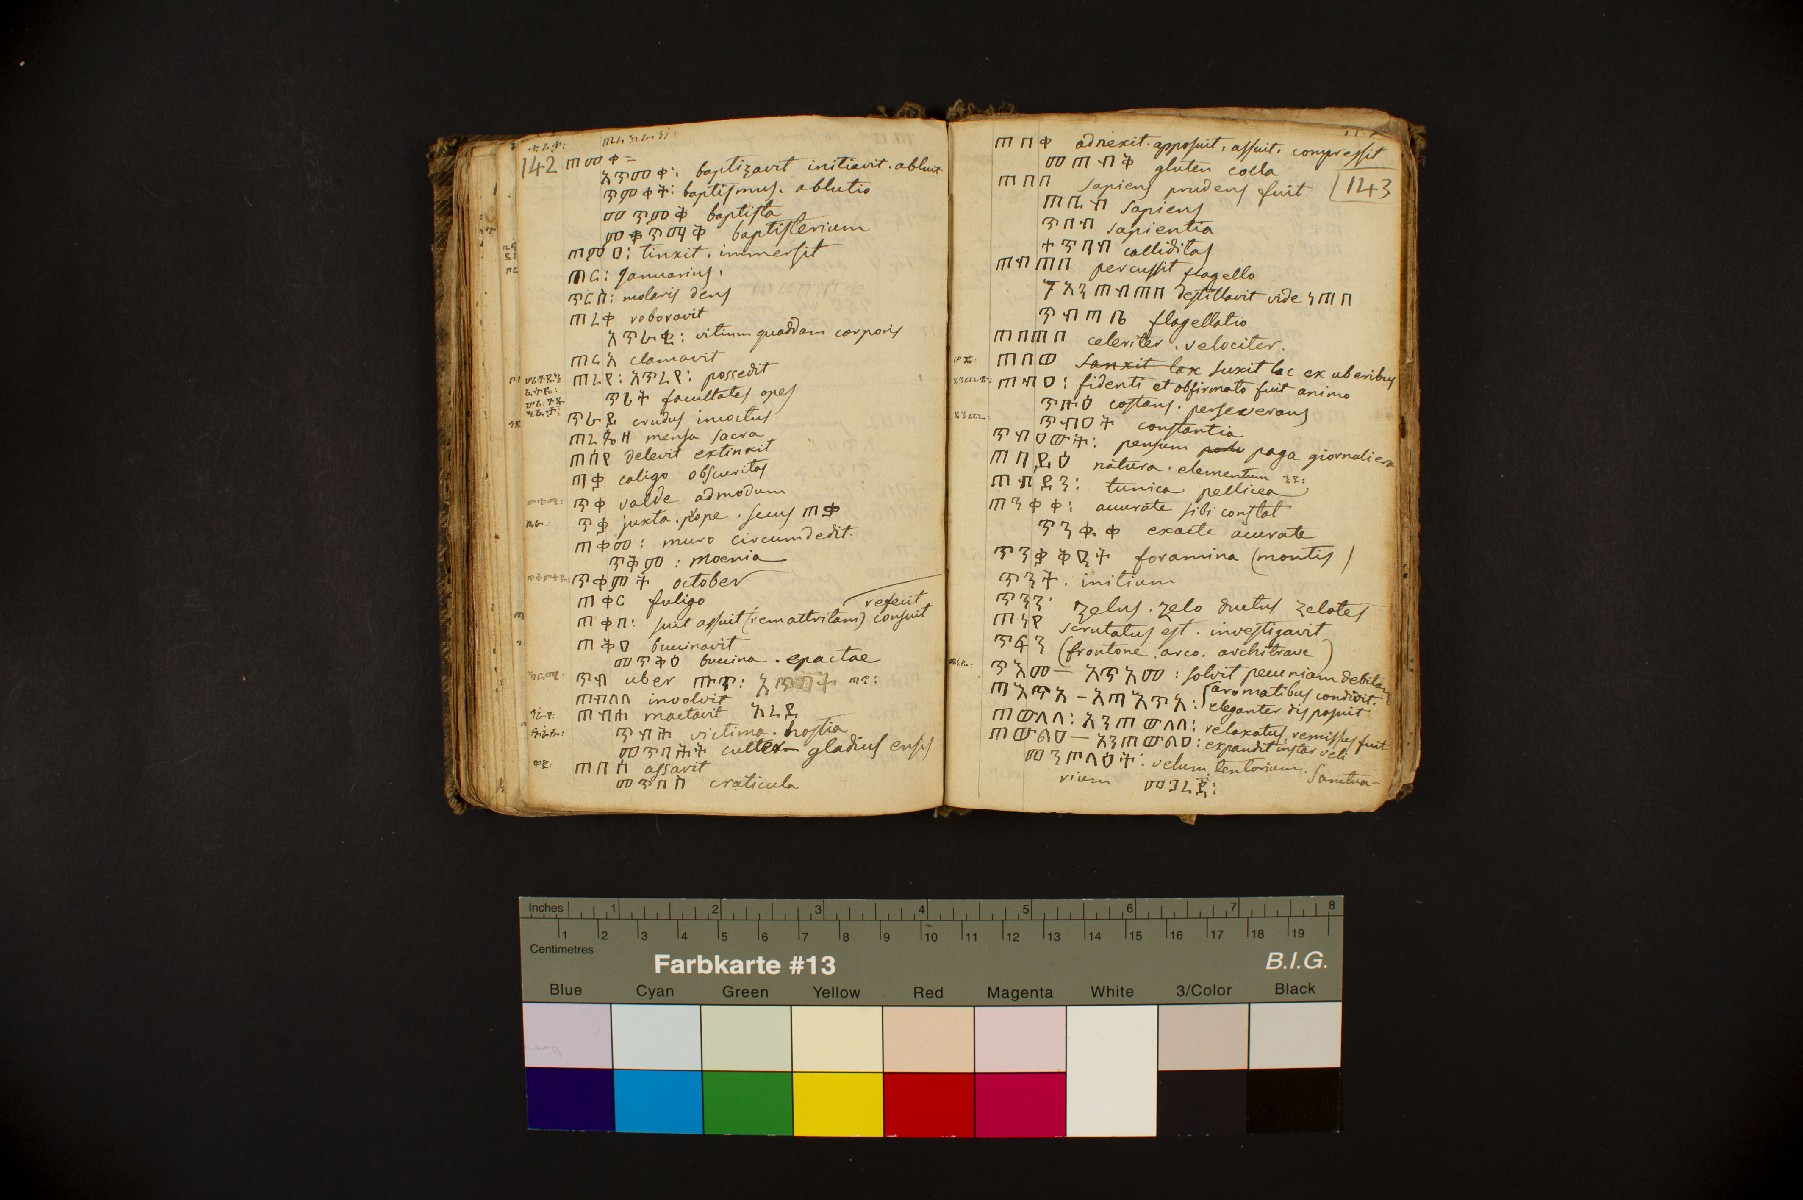 142 ጠመቀ =
አጥመቀ: baptizavit initiavit. abluit
ጥምቀት: baptismus. ablutio
መጥምቅ baptista
ምቅጥማቅ baptisterium
ጠምዐ: tinxit. immersit
ጠር: Januarius.
ጥርስ: molaris dens
ጠረቀ roboravit
አጥራቂ: vitium quoddam corporis
ጠርአ clamavit
ጠረየ: አጥረየ: possedit
ጥሪት facultates opes
ጥራይ crudus incoctus
ጠረጴዛ mensa sacra
ጠስየ delevit extinxit
caligo obscuritas
ጥቀ valde admodum
ጥቃ juxta. prope. secus ጠቃ
ጠቀመ: muro circumdedit.
ጥቅም: moenia
ጥቀምት october
ጠቀር fuligo
resent
ጠቀበ: suit assuit (rem attritam) consuit
ጠቅዐ buccinavit
መጥቅዕ buccina. epactae
ጥብ uber
ጠብለለ involvit
ጠብሐ mactavit አረደ
ጥብሕ victima. hostia
መጥባሕት culter gladius ensis
ጠበሰ assavit
መጥበስ craticula
ጠበቀ adnexit. apposuit, assuit. compressit
መጠብቅ gluten colla
143
ጠበበ sapiens prudens fuit
ጠቢብ sapiens
ጥበብ sapientia
ተጥባብ calliditas
ጠብጠበ percussit flagello
አንጠብጠበ destillavit vide ነጠበ
ጥብጣቤ flagellatio
ጠበጠበ celeriter. velociter.
ጠበወ suxit lac ex uberibus
ጠብዐ: fidenti et obfirmato fuit animo
ጥቡዕ costans. perseverans
ጥብዐት constantia
ጥብዖት: pensum paga giornaliera
ጠባይዕ natura. elementum
ጠብደን: tunica pellicea
ጠንቀቀ: accurate sibi constat
ጥንቁቀ exacte accurate
foramina (montis)
ጥንት. initium
ጥንን zelus. zelo ductus zelotes
ጠነየ scrutatus est. investigavit
ጥፍን (frontone. arco. architrave)
ጥእመ — አጥአመ: solvit pecuniam debitam
ጠአጥአ — አጣአጥአ: aromatibus condivit.
eleganter disposuit
ጠወለለ: አንጠወለለ: relaxatus, remissus fuit
ጠወልዐ — አንጠወልዐ: expandit instar veli
መንጦላዕት: velum, tentorium. Sanctua-
rium መጋረጃ:
Inches 1 2 3 4 5 6 7 8
Centimetres 1 2 3 4 5 6 7 8 9 10 11 12 13 14 15 16 17 18 19
Farbkarte #13
B.I.G.
Blue Cyan Green Yellow Red Magenta White 3/Color Black